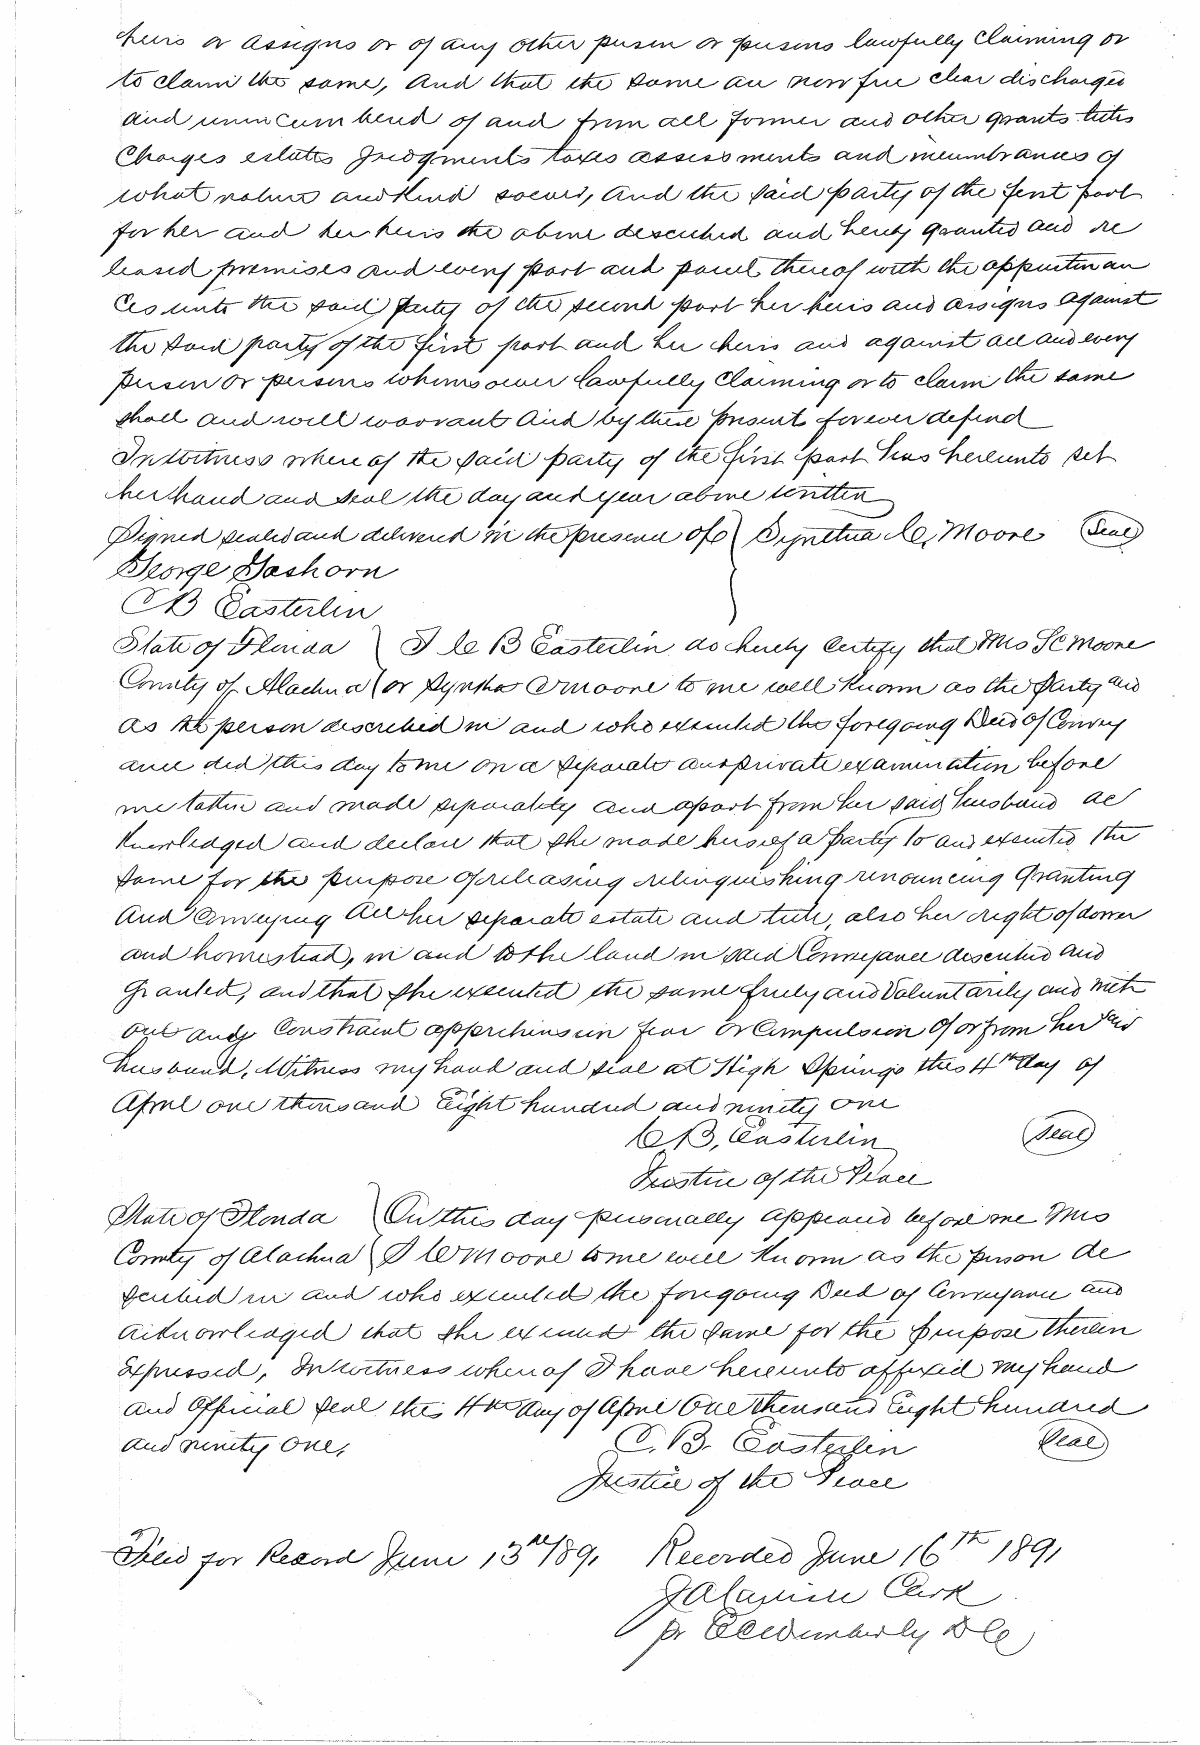 heirs or assigns or of any other person or persons lawfully claiming or
to claim the same, and that the same are now free clear discharged
and unincumbered of and from all former and other grants titles
Charges estates Judgments taxes assessments and incumbrances of
what nature and kind soever, and the said party of the first part
for her and her heirs the above described and hereby granted and re
leased premises and every part and parcel thereof with the appurtenan
ces unto the said party of the second part her heirs and assigns against
the said party of the first part and her heirs and against all and every
person or persons whomsoever lawfully claiming or to claim the same
shall and will warrant and by these presents forever defend
In witness where of the said party of the first part has hereunto set
her hand and seal the day and year above written
Signed sealed and delivered in the presence of } Synthia C. Moore Seal
George Gashorn
CB Easterlin
State of Florida } I C B Easterlin do hereby certify that Mrs S C Moore
County of Alachua } or Syntha C Moore to me well known as the party and
as the person described in and who executed the foregoing Deed of Convey
ance did this day to me on a separate and private examination before
me taken and made separately and apart from her said husband ac
knowledged and declare that she made herself a party to and executed the
same for the purpose of releasing relinquishing renouncing Granting
and Conveying all her separate estate and title, also her right of dower
and homestead, in and to the land in said Conveyance described and
Granted, and that she executed the same freely and voluntarily and with
out any constraint apprehension fear or compulsion of or from her said
husband. Witness my hand and seal at High Springs this 4th day of
April one thousand Eight hundred and ninety one
C B, Easterlin Seal
Justice of the Peace
State of Florida } On this day personally appeared before me Mrs
County of Alachua } S C Moore to me well known as the person de
scribed in and who executed the foregoing Deed of Conveyance and
acknowledged that she executed the same for the purpose therein
Expressed, In witness where of I have hereunto affixed my hand
and Official Seal this 4th day of April One thousand Eight hundred
and ninety one, C. B. Easterlin Seal
Justice of the Peace
Filed for Record June 13th/891 Recorded June 16th 1891
J A Carlisle Clerk
pr Wimberly D C